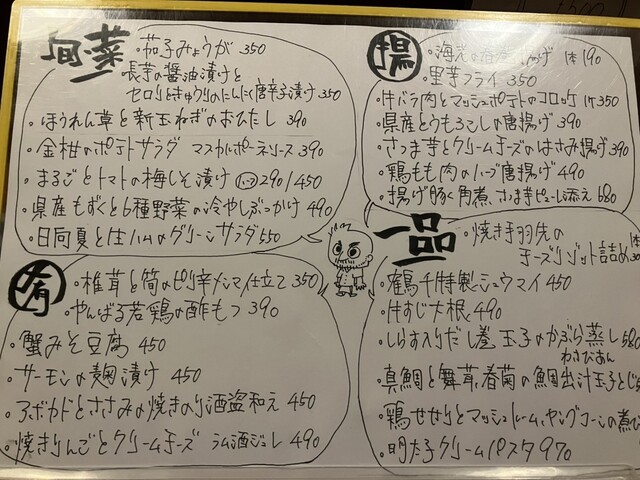 旬菜
・茄子みょうが 350
長芋の醤油漬けと
セロリときゅうりのにんにく唐辛子漬け 350
・ほうれん草と新玉ねぎのおひたし 390
・金柑のポテトサラダ マスカルポーネソース 390
・まるごとトマトの梅しそ漬け ハーフ 290/450
・県産もずくと6種野菜の冷やしぶっかけ 490
・日向夏と生ハムのグリーンサラダ 550
肴
・椎茸と筍のピリ辛メンマ仕立て 350
・やんばる若鶏の酢もつ 390
・蟹みそ豆腐 450
・サーモンの麹漬け 450
・アボカドとささみの焼きのり酒盗和え 450
・焼きりんごとクリームチーズ ラム酒ジュレ 490
揚
揚げ 1本190
・里芋フライ 350
・牛バラ肉とマッシュポテトのコロッケ 1ヶ350
・県産とうもろこしの唐揚げ 390
・さつま芋とクリームチーズのはさみ揚げ 390
・鶏もも肉のハーブ唐揚げ 490
・揚げ豚く角煮、さつま芋ピューレ添え 680
一品
・焼き手羽先の
チーズリゾット詰め 1本
・鶴千特製シュウマイ 450
・牛すじ大根 490
・しらす入りだし巻玉子のかぶら蒸し 580
わさびあん
・真鯛と舞茸、春菊の鯛出汁玉子とじ
・鶏せせりとマッシュルーム、ヤングコーンの煮び
・明太子クリームパスタ 970